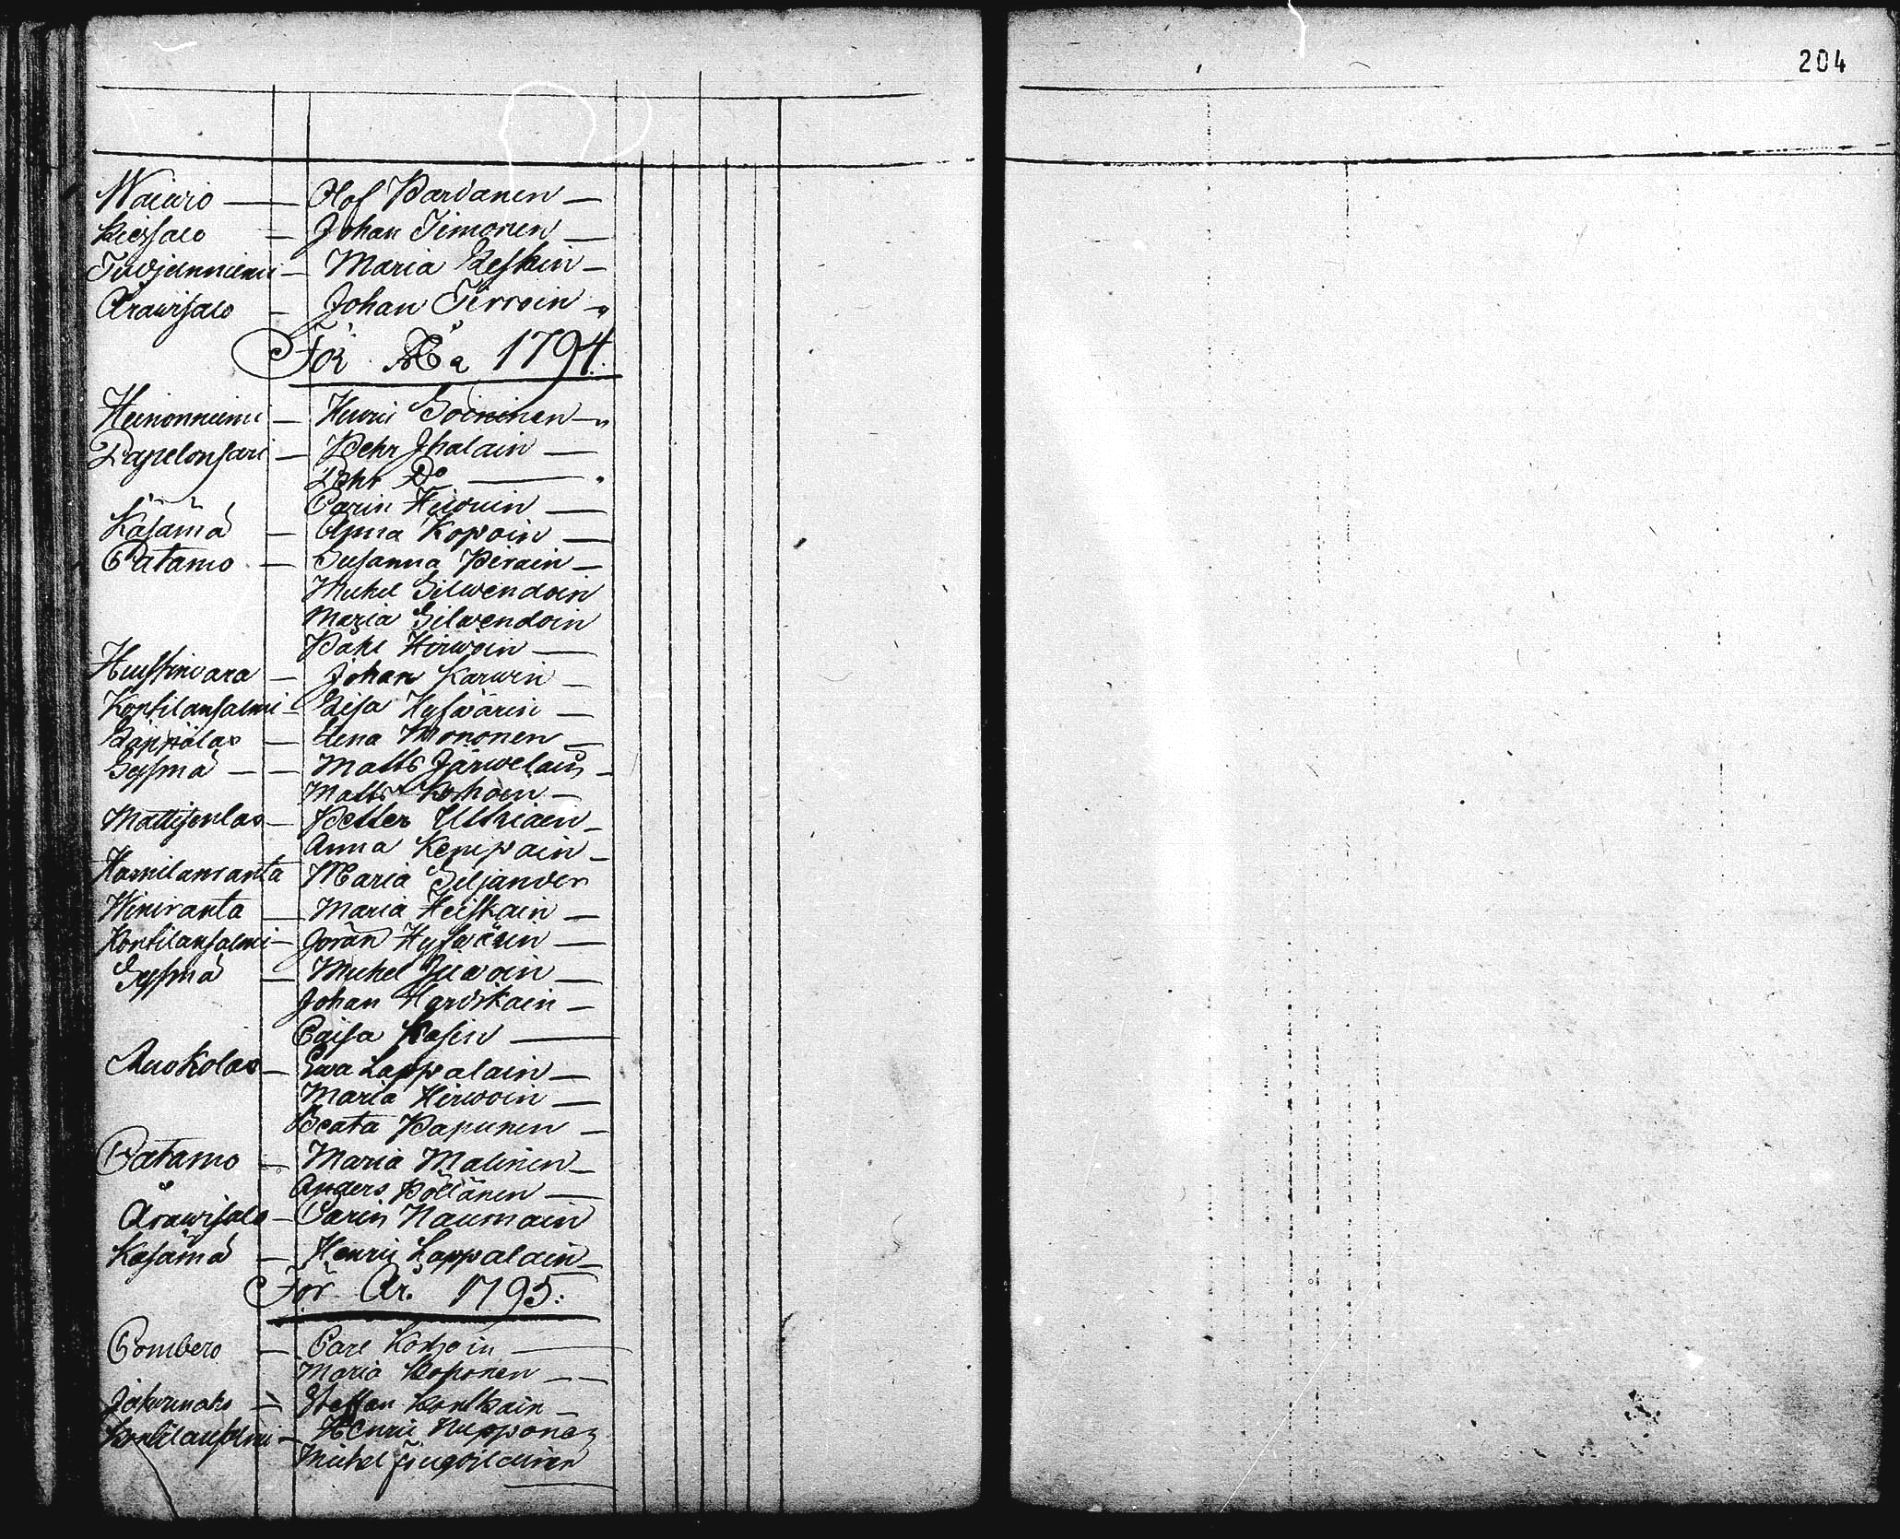 204
Waiwio — Olof Pardanen —
Kiessalo — Johan Timonen —
Tiidjanniemi — Maria Leskin —
Arawisalo — Johan Tirroin —
För År 1794.
Heinonniemi — Henric Soininen —
Papelonsari — Pehr Ihalain —
Pehr Do —
Carin Hirvuin —
Käsämä — Anna Kopoin —
Patamo — Susanna Pirain —
Michel Silwendoin
Maria Silwendoin
Påhl Hirwoin —
Huistinvara — Johan Karwin —
Kontilansalmi — Lisa Hyfwärin —
Leppälax — Lena Mononen —
Sysmä — Matts Järwelain —
Matts Kohoin —
Mattisenlax — Petter Ulkiain —
Anna Kempain —
Hamilanranta Maria Siljander
Winiranta — Maria Heiskain —
Kontilansalmi — Joran Hyfwärin —
Sysmä — Michel Juwoin —
Johan Hardikain —
Caisa Kasin —
Ruokolax — Ewa Lappalain —
Maria Hirwoin —
Beata Papunen —
Patamo — Maria Malinen —
Anders Pöllänen —
Arawisalo — Carin Naumain
Käsämä — Henric Lappalain —
För År. 1795:
Pombero — Carl Kokoin —
Maria Koponen —
Jakunvaks — Steffan Kontkain —
Kontilansalmi — Henric Nupponen
Michel